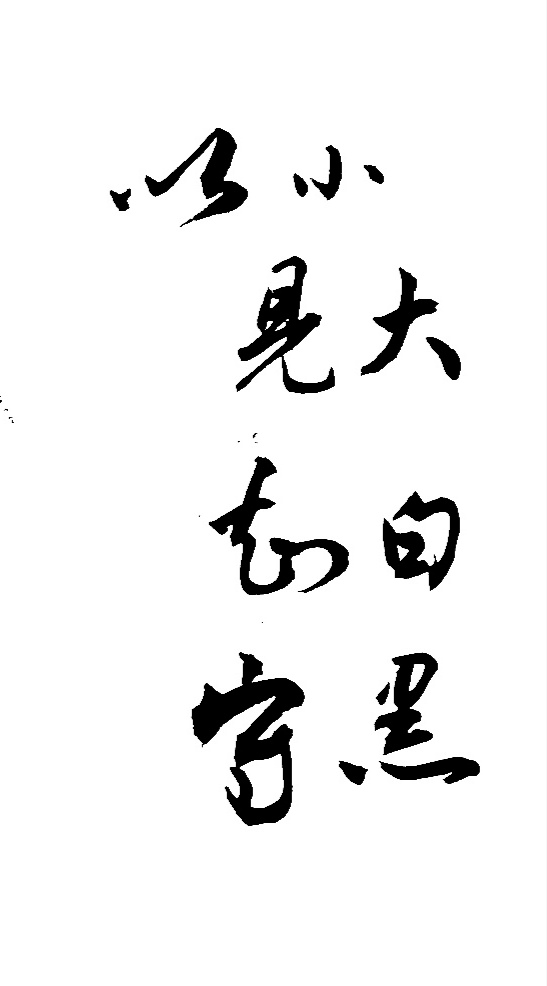 以小
見大
知白
守黑